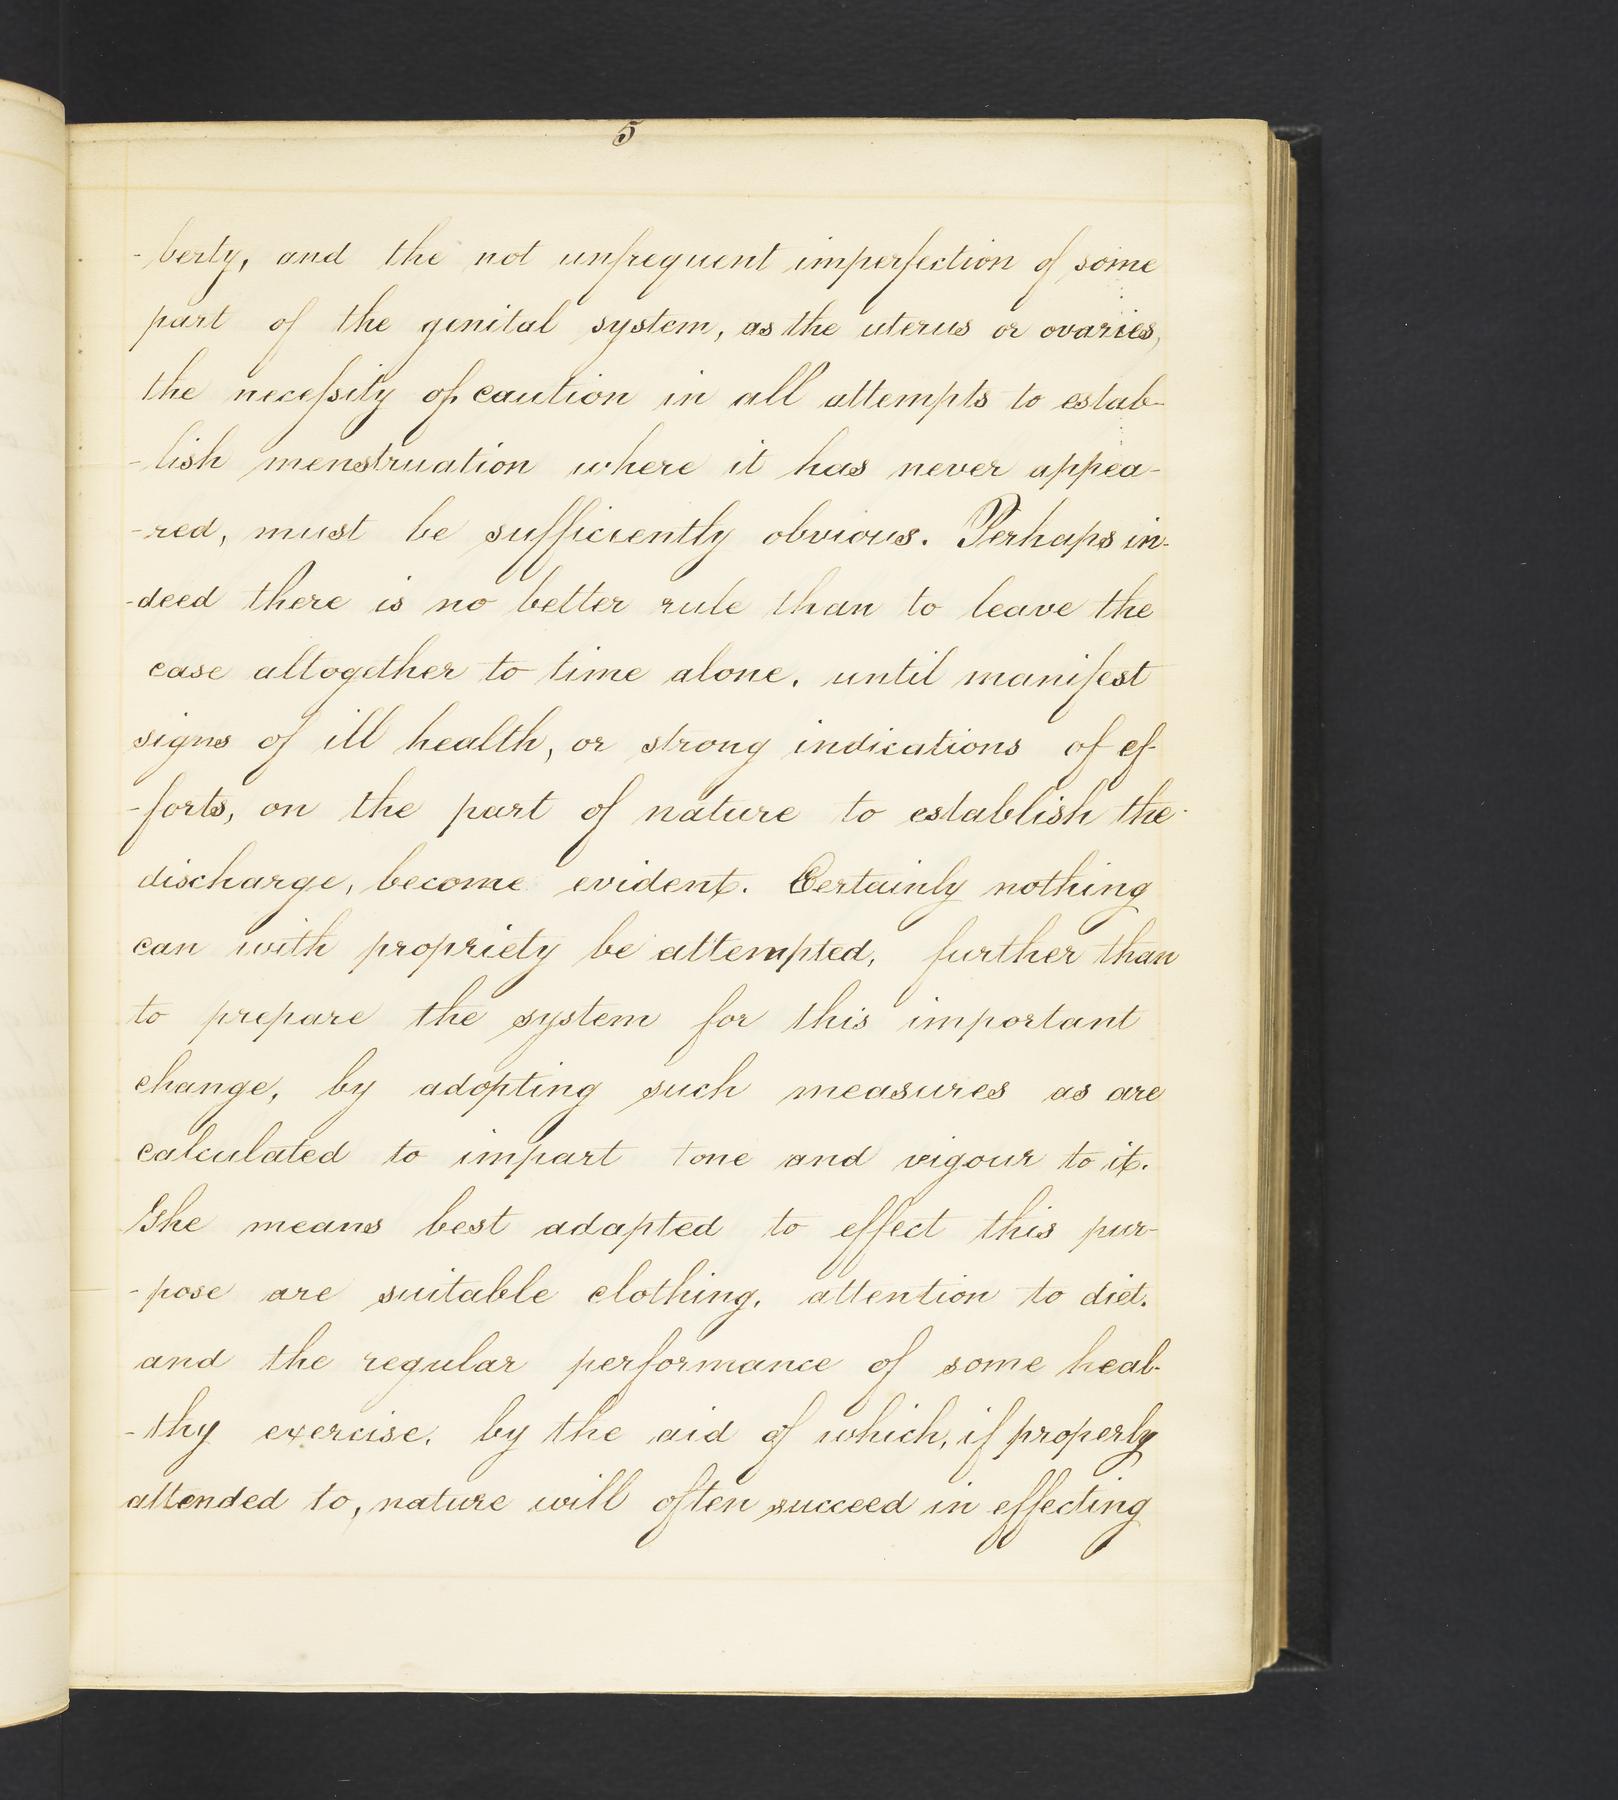 5
-berty, and the not unfrequent imperfection of some
part of the genital system, as the uterus or ovaries,
the necessity of caution in all attempts to estab-
-lish menstruation where it has never appea-
-red, must be sufficiently obvious. Perhaps in-
-deed there is no better rule than to leave the
case altogether to time alone, until manifest
signs of ill health, or strong indications of ef-
-forts, on the part of nature to establish the
discharge, become evident. Certainly nothing
can with propriety be attempted, further than
to prepare the system for this important
change, by adopting such measures as are
calculated to impart tone and vigour to it.
The means best adapted to effect this pur-
-pose are suitable clothing, attention to diet,
and the regular performance of some heal-
-thy exercise, by the aid of which, if properly
attended to, nature will often succeed in effecting